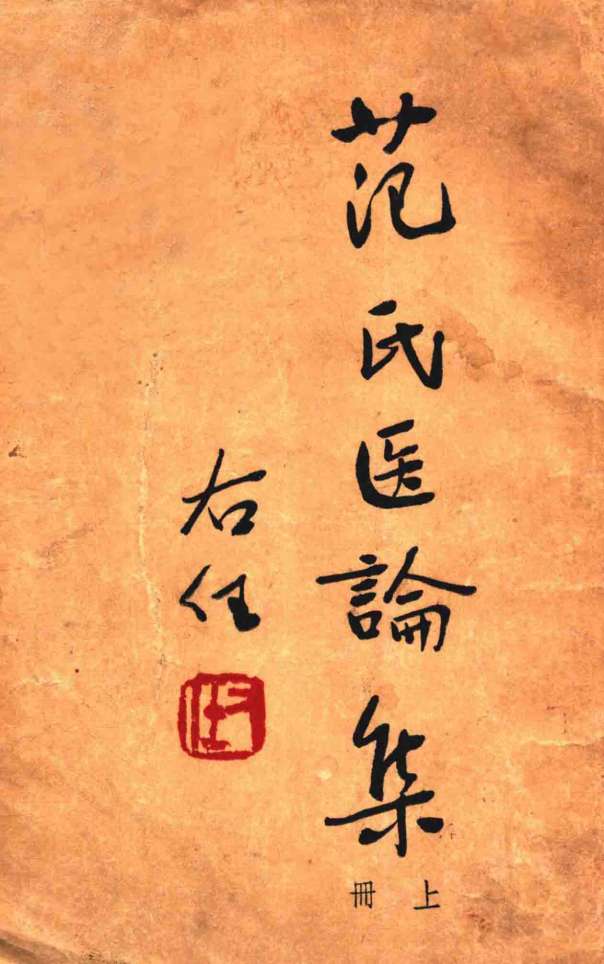 范氏医論集
上冊
右任